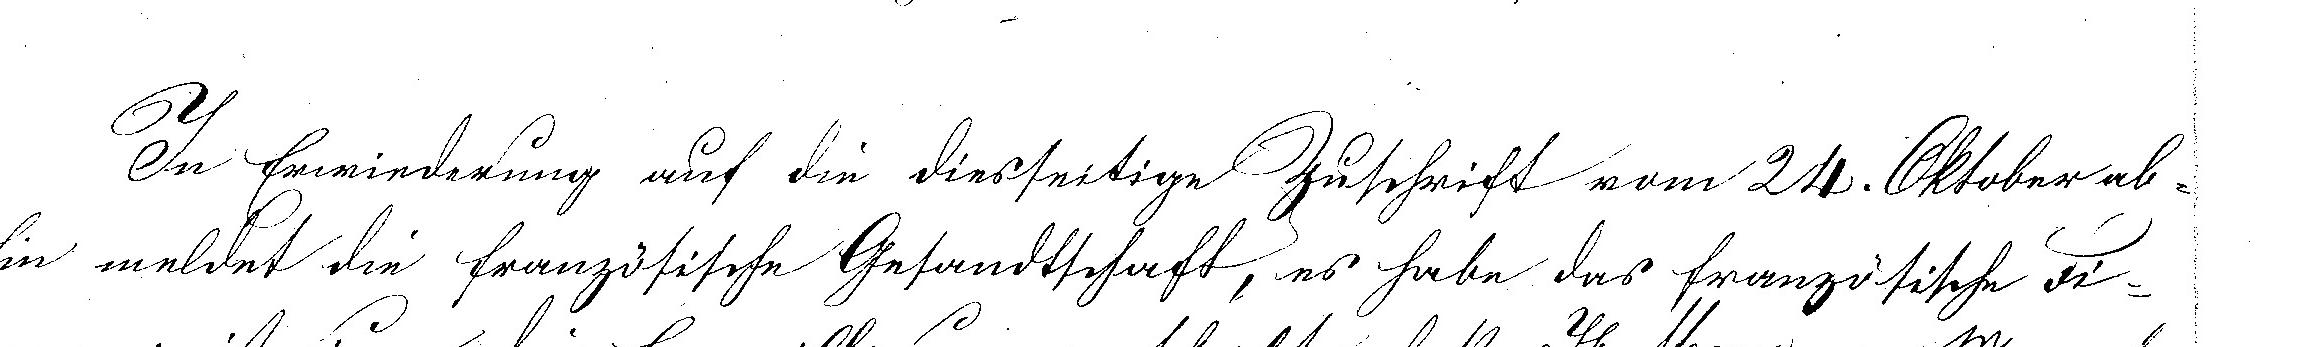 In Erwiederung auf die diesseitige Zuschrift vom 24. Oktober ab-
hin meldet die französische Gesandtschaft, es habe das französische Fi-